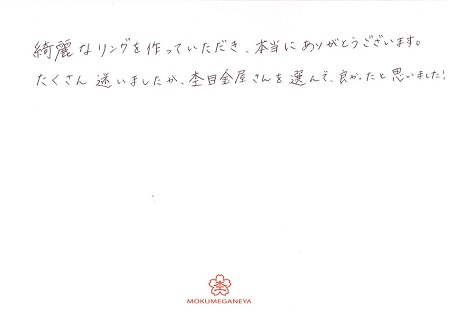 綺麗なリングを作っていただき、本当にありがとうございます。
たくさん迷いましたが、杢目金屋さんを選んで、良かったと思いました!
杢
MOKUMEGANEYA